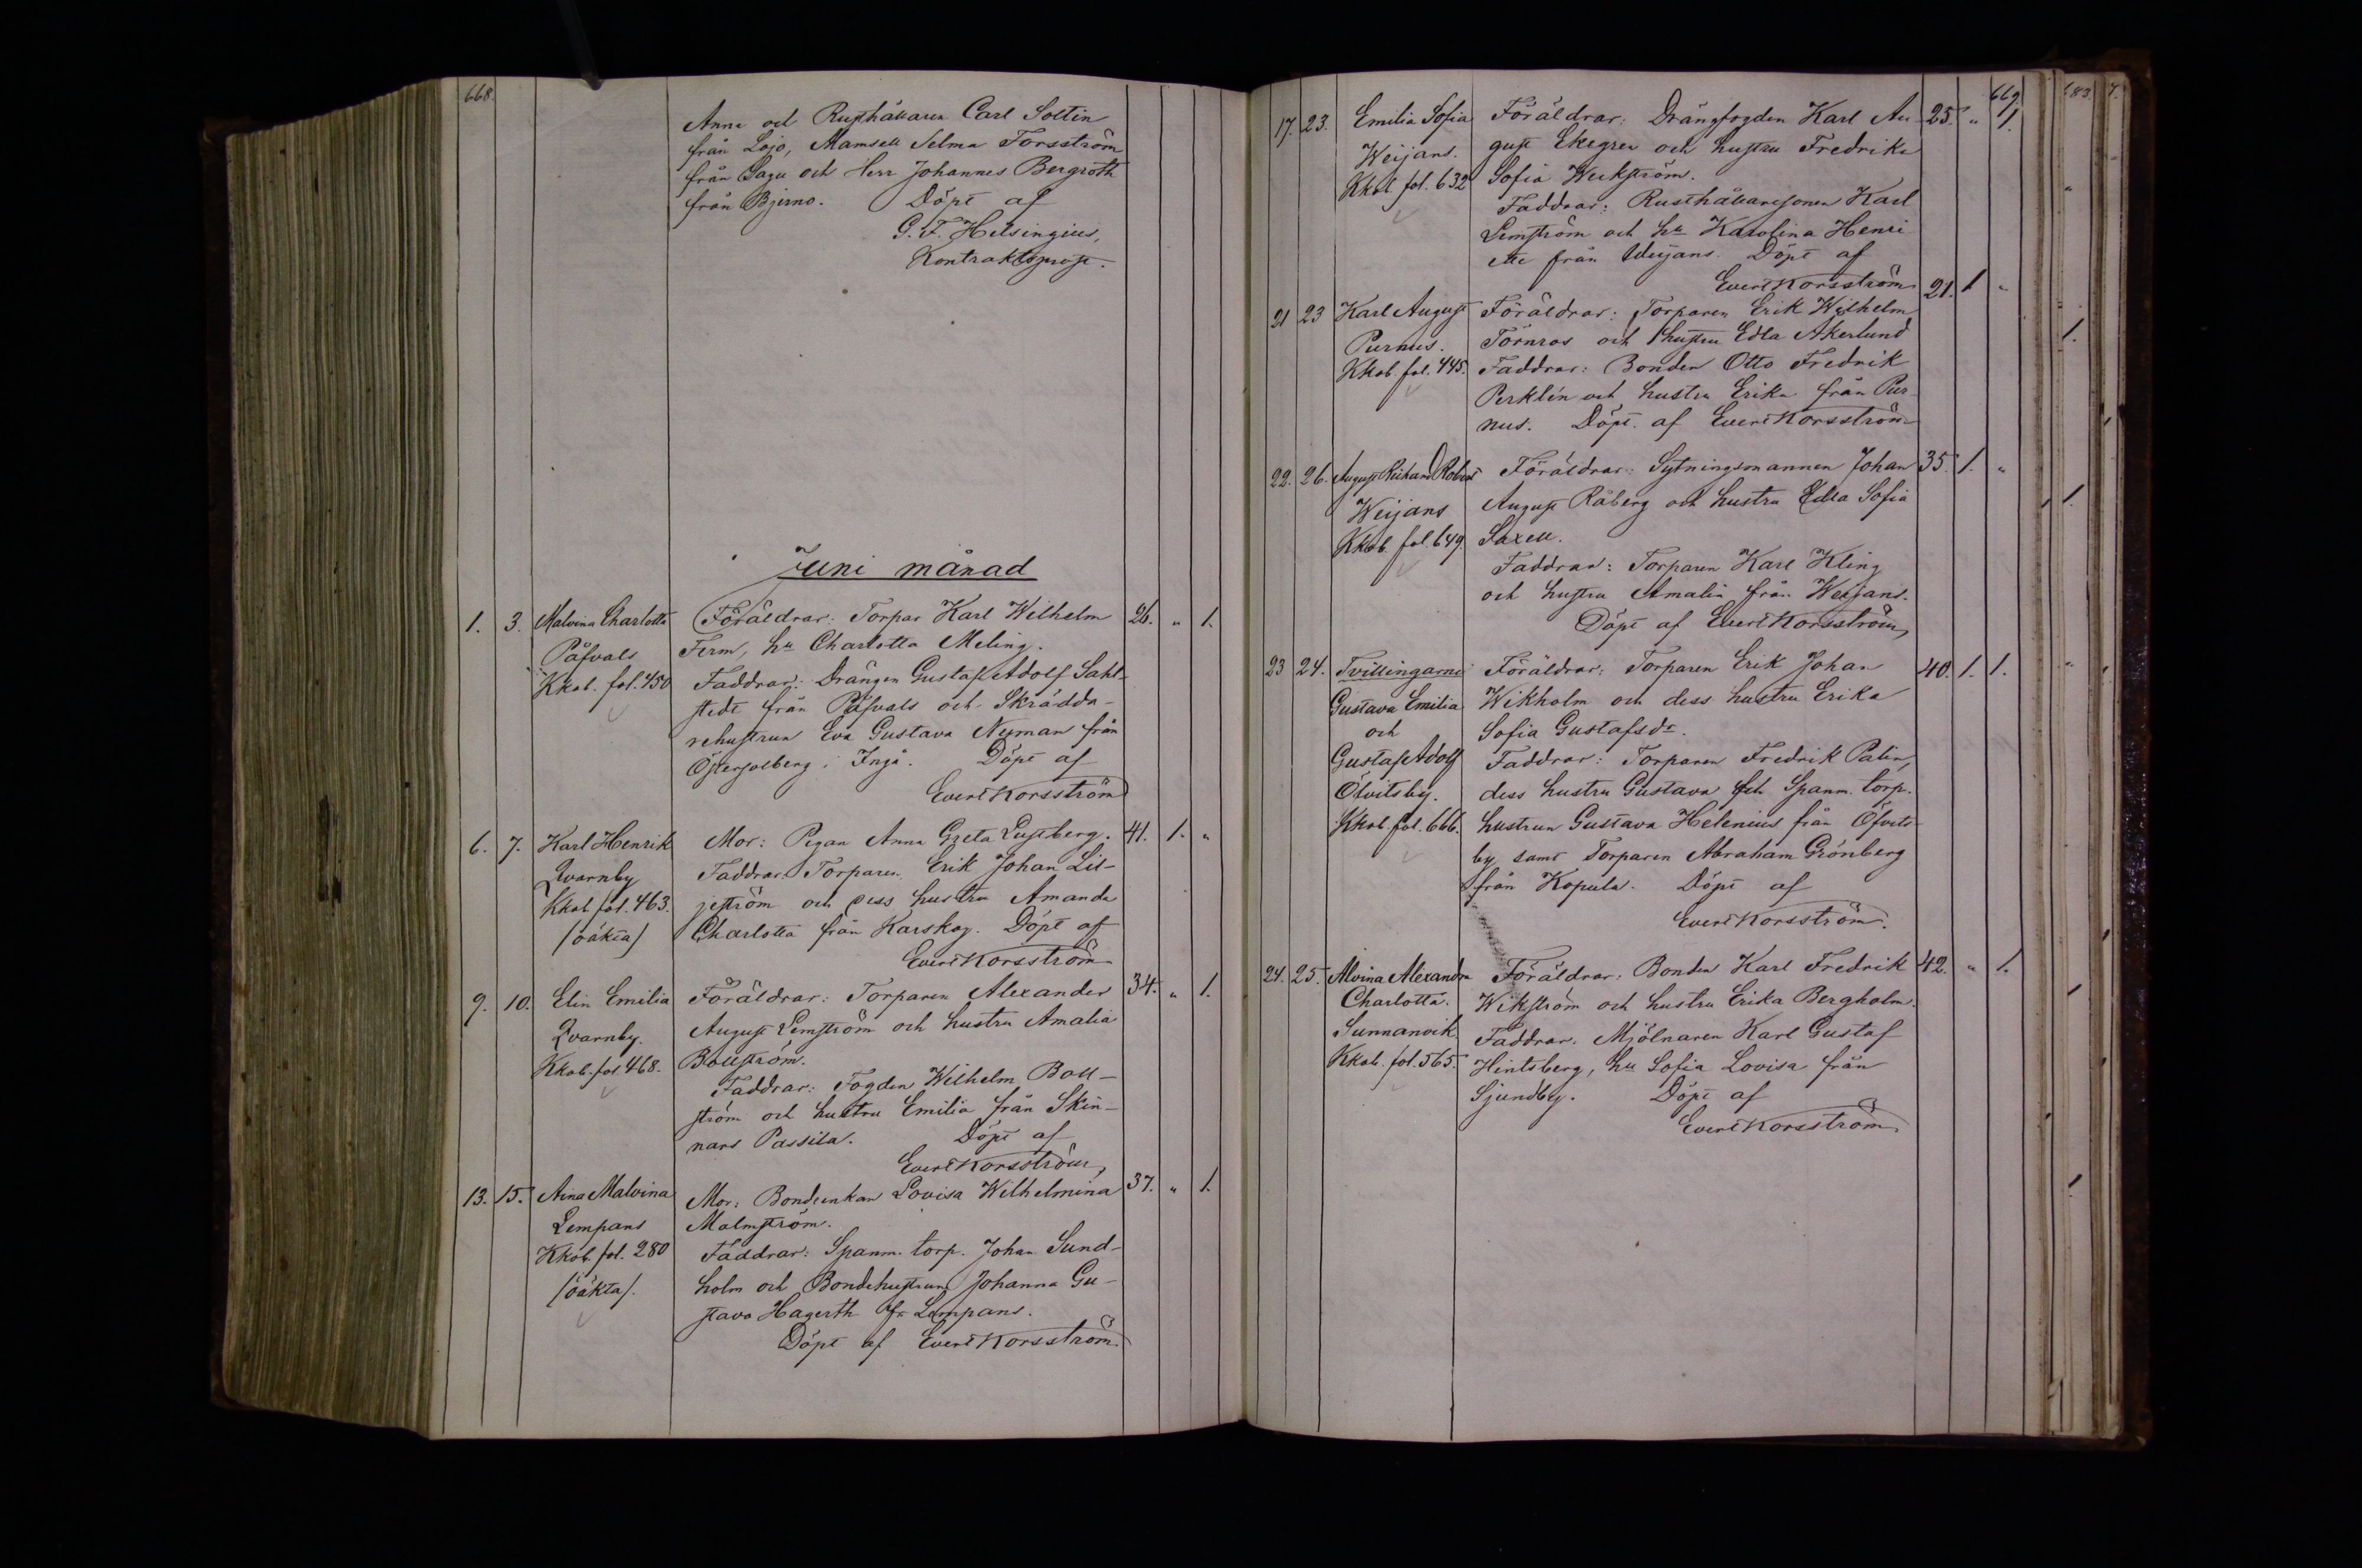 668.
Anna och Rusthållaren Carl Soltin
från Lojo, Mamsell Selma Forsström
från Sagu och Herr Johannes Bergroth
från Bjerno. Döpt af
G. F. Helsingius,
Kontraktsprost.
Juni månad
1. 3. Malvina Charlotta Föräldrar: Torpar Karl Wilhelm 26. " 1.
Påfvals Ferm, hu Charlotta Meling.
Kkob. fol. 450 Faddrar: Drängen Gustaf Adolf Sahl-
stedt från Påfvals och Skrädda-
rehustrun Eva Gustava Nyman från
Östersolberg i Ingå. Döpt af
Evert Korsström
6. 7. Karl Henrik Mor: Pigan Anna Greta Lustberg. 41. 1. "
Qvarnby Faddrar: Torparen Erik Johan Lil-
Kkob. fol. 463. jeström och dess hustru Amanda
/oäkta/ Charlotta från Karskog. Döpt af
Evert Korsström
9. 10. Elin Emilia Föräldrar: Torparen Alexander 34. " 1.
Qvarnby. August Lemström och hustru Amalia
Kkob. fol 468. Bollström.
Faddrar: Fogden Wilhelm Boll-
ström och hustru Emilia från Skin-
nars Passila. Döpt af
Evert Korsström,
13. 15. Aina Malvina Mor: Bondeenkan Lovisa Wilhelmina 37. " 1.
Lempans Malmström.
Kkob. fol. 280 Faddrar: Spanm. torp. Johan Sund-
/oäkta/. holm och Bondehustrun Johanna Gu-
stava Hagerth fr. Lempans.
Döpt af Evert Korsström
669.
17. 23. Emilia Sofia Föräldrar: Drängfogden Karl Au- 25. " 1.
Weijans. gust Ekegren och hustru Fredrika
Kkob. fol. 632 Sofia Weckström.
Faddrar: Rusthållaresonen Karl
Lemström och hu Karolina Henri
ette från Weijans. Döpt af
Evert Korsström
21 23 Karl August Föräldrar: Torparen Erik Wilhelm 21. 1 "
Purnus. Törnros och hustru Edla Åkerlund
Kkob. fol. 445. Faddrar: Bonden Otto Fredrik
Perklén och hustru Erika från Pur-
nus. Döpt af Evert Korsström
22. 26. August Richard Robert Föräldrar: Sytningsmannen Johan 35. 1. "
Weijans August Råberg och hustru Edla Sofia
Kkob. fol. 649. Saxell.
Faddrar: Torparen Karl Kling
och hustru Amalia från Weijans.
Döpt af Evert Korsström,
23 24. Tvillingarne Föräldrar: Torparen Erik Johan 40. 1. 1.
Gustava Emilia Wikholm och dess hustru Erika
och Sofia Gustafsdr.
Gustaf Adolf Faddrar: Torparen Fredrik Palin,
Öfvitsby. dess hustru Gustava och Spanm. torp.
Kkob. fol. 666. hustrun Gustava Helenius från Öfvits-
by samt Torparen Abraham Grönberg
från Kopula. Döpt af
Evert Korsström.
24. 25. Alvina Alexandra Föräldrar: Bonden Karl Fredrik 42. " 1.
Charlotta. Wikström och hustru Erika Bergholm.
Sunnanvik Faddrar: Mjölnaren Karl Gustaf
Kkob. fol. 565. Hintsberg, hu Sofia Lovisa från
Sjundby. Döpt af
Evert Korsström